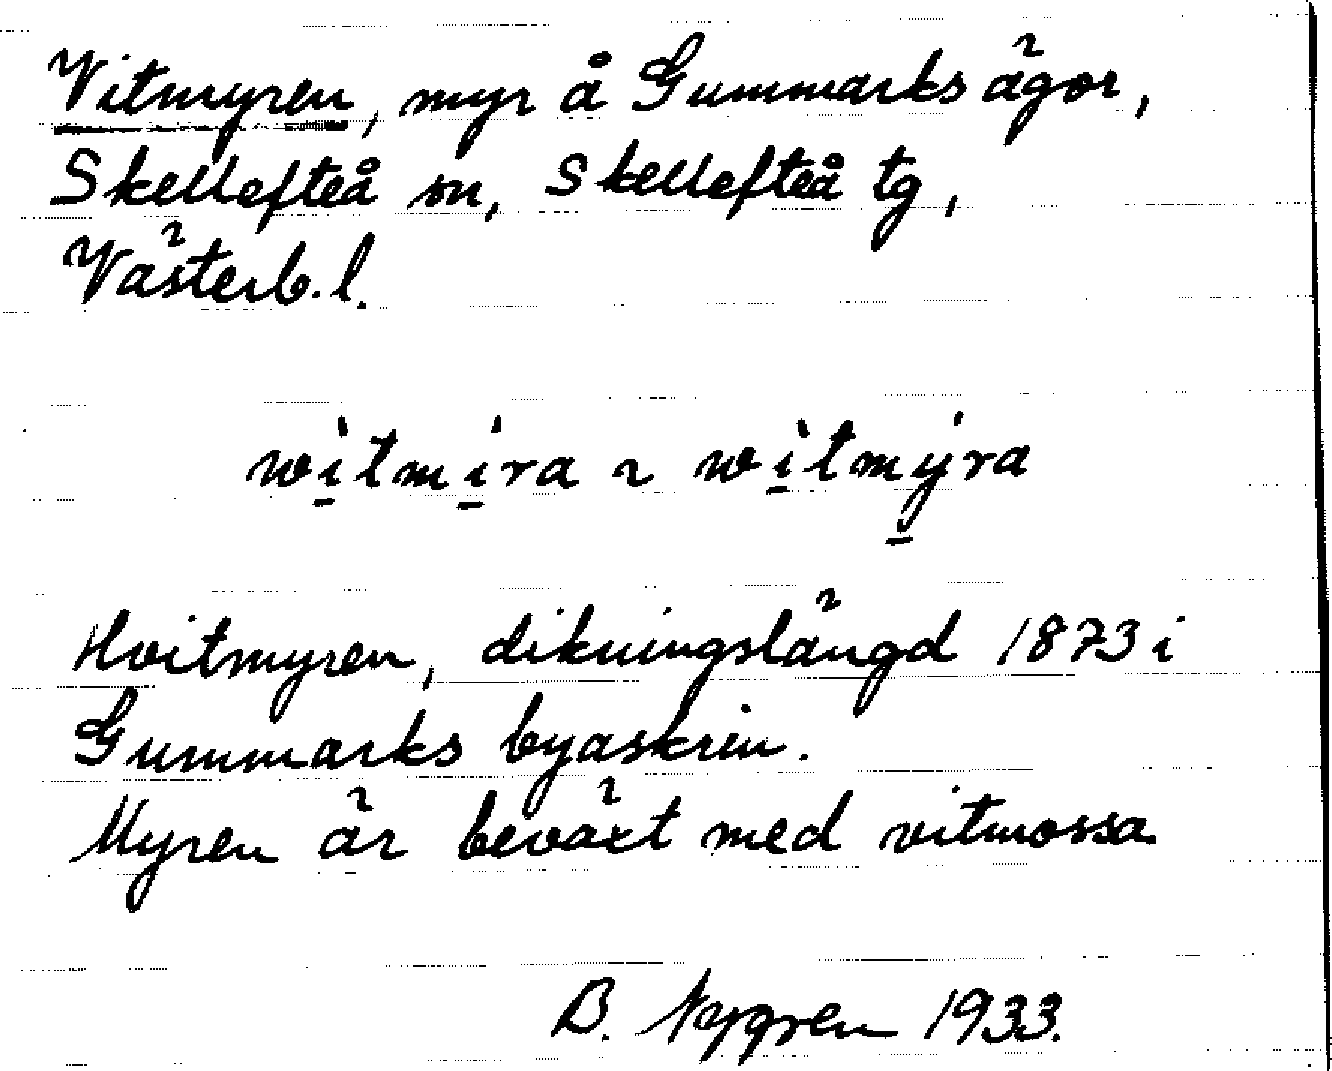 Vitmyren, myr å Gummarks ägor,
Skellefteå sn, Skellefteå tg,
Västerb. l.
wi̱tmi̱ra ~ wi̱tmy̱ra
Hvitmyren, dikningslängd 1873 i
Gummarks byaskrin.
Myren är beväxt med vitmossa
B. Nygren 1933.